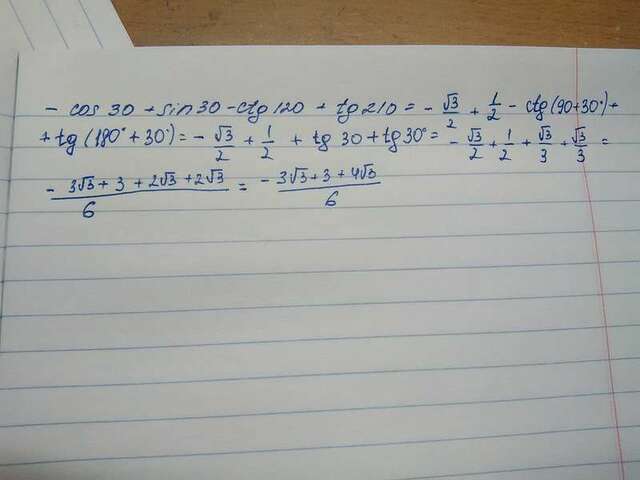 - cos 30 + sin 30 - ctg 120 + tg 210 = - √3/2 + 1/2 - ctg (90+30°) +
+ tg (180° + 30°) = - √3/2 + 1/2 + tg 30 + tg 30° = - √3/2 + 1/2 + √3/3 + √3/3 =
- 3√3 + 3 + 2√3 + 2√3 / 6 = - 3√3 + 3 + 4√3 / 6